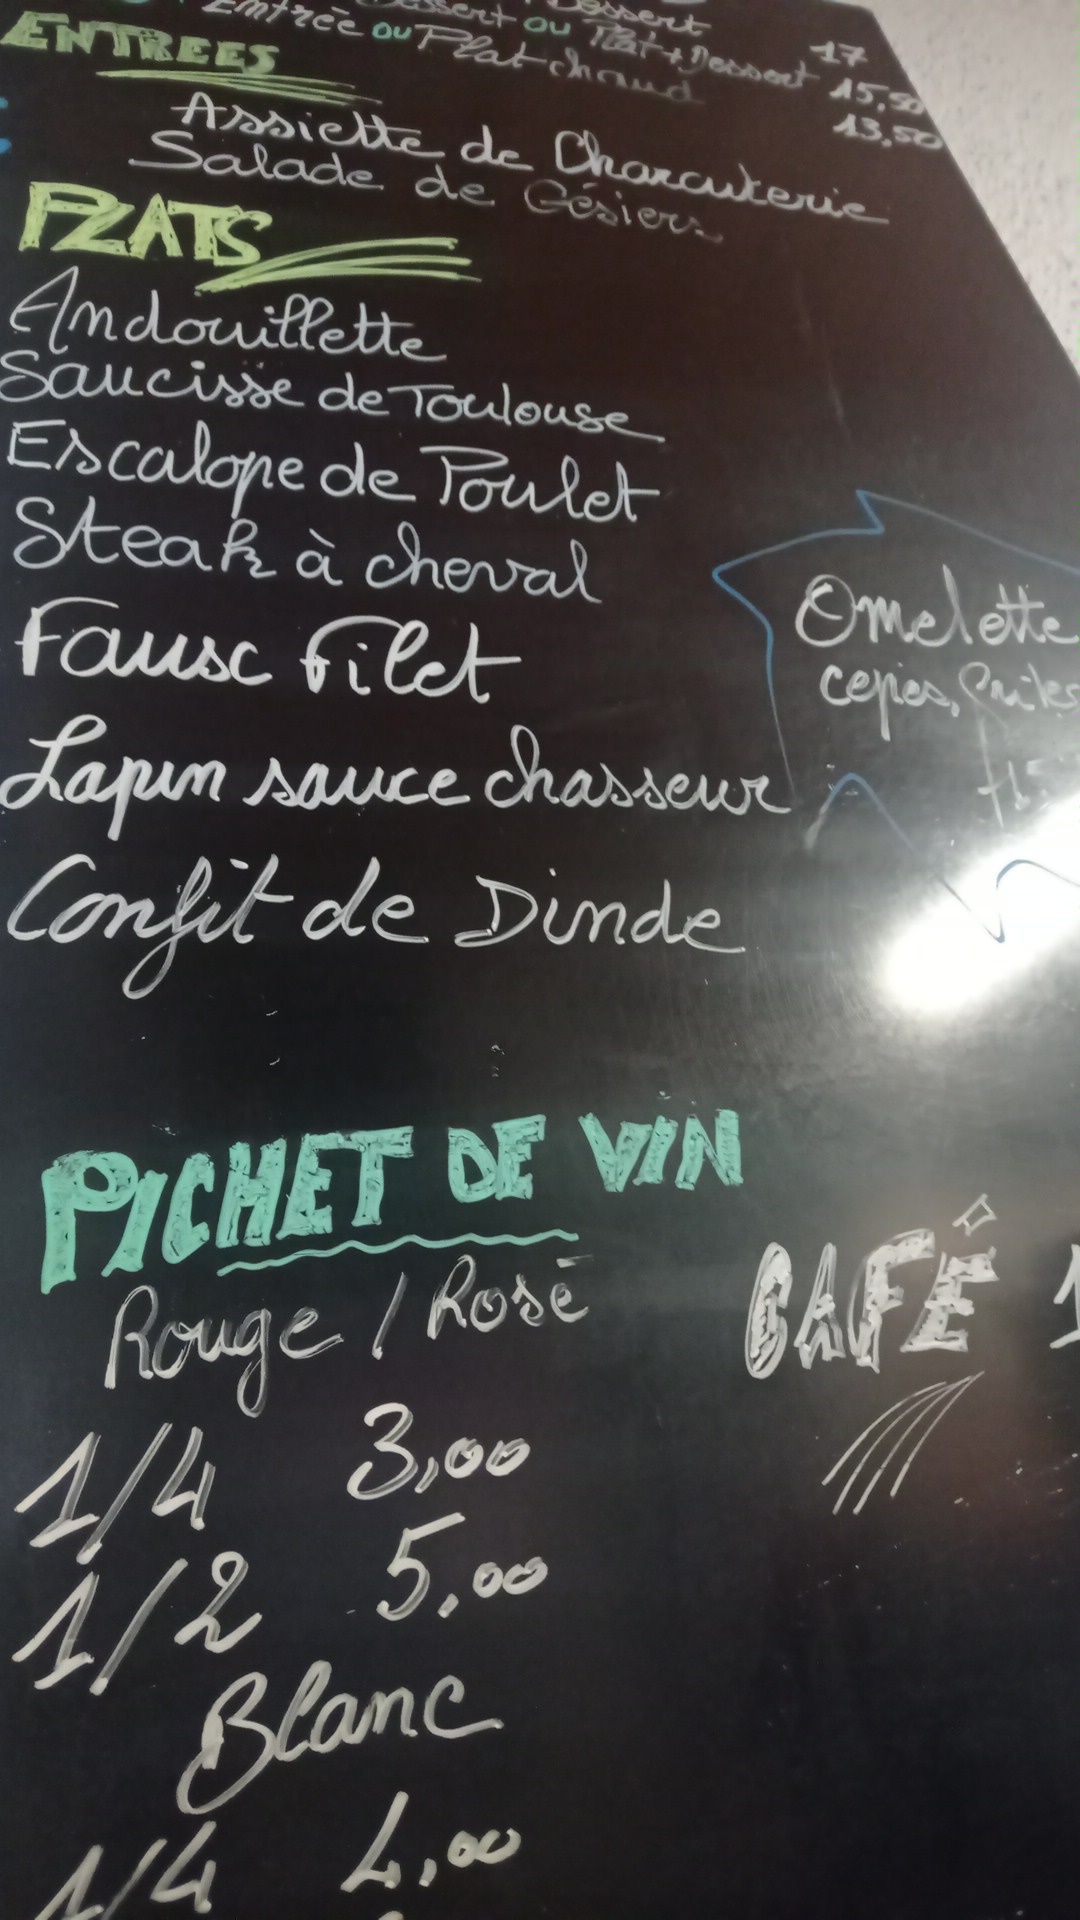 Dessert 17
Entrée ou Plat + Dessert 15,50
Plat chaud 13,50
ENTREES
Assiette de Charcuterie
Salade de Gésiers
PLATS
Andouillette
Saucisse de Toulouse
Escalope de Poulet
Steak à cheval
Faux Filet
Lapin sauce chasseur
Confit de Dinde
Omelette
cepes, frites
PICHET DE VIN
Rouge / Rosé
1/4 3,00
1/2 5,00
Blanc
1/4 4,00
CAFÉ 1